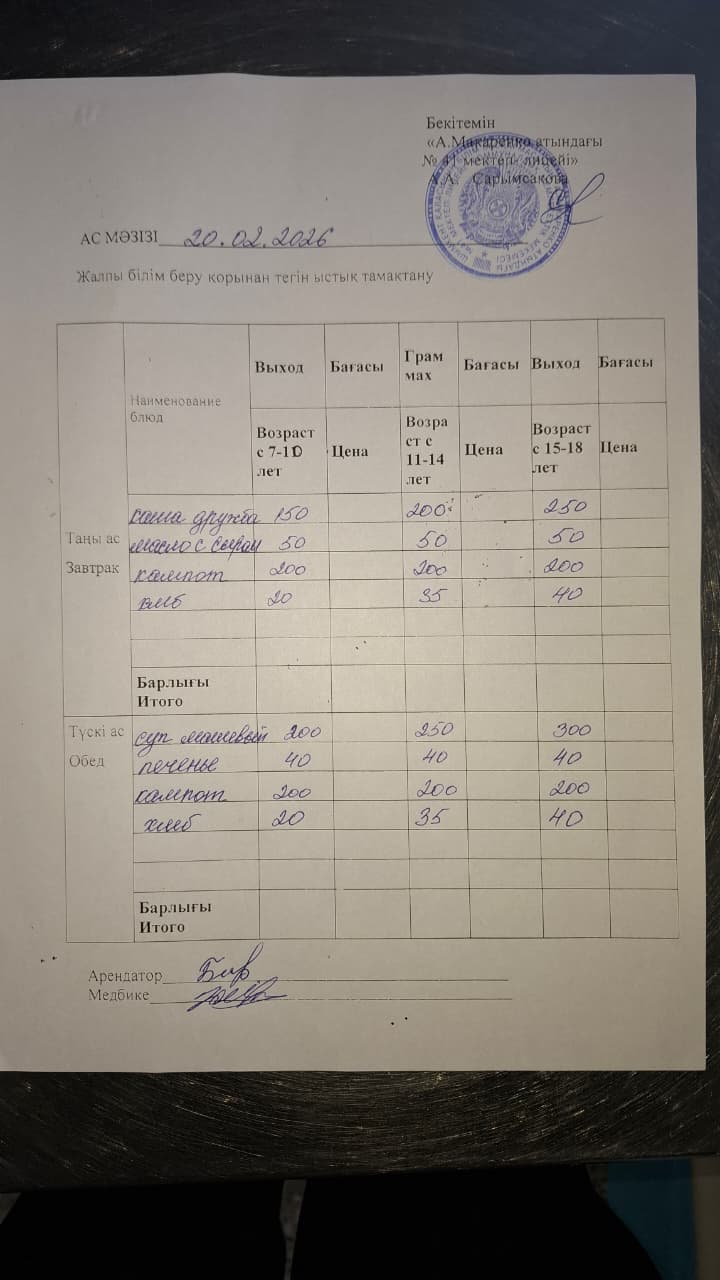 Бекітемін
«А.Макаренко атындағы
№ 41 мектеп- лицейі»
А.А. Сарымсакова
АС МӘЗІЗІ 20.02.2026
Жалпы білім беру қорынан тегін ыстық тамақтану
Наименование блюд
Выход Бағасы Грам мах Бағасы Выход Бағасы
Возраст с 7-11 лет Цена Возраст с 11-14 лет Цена Возраст с 15-18 лет Цена
Таңы ас
Завтрак
каша дружба 150 200 250
масло с сыром 50 50 50
кампот 200 200 200
хлеб 20 35 40
Барлығы
Итого
Түскі ас
Обед
суп машевый 200 250 300
печенье 40 40 40
кампот 200 200 200
хлеб 20 35 40
Барлығы
Итого
Арендатор
Медбике